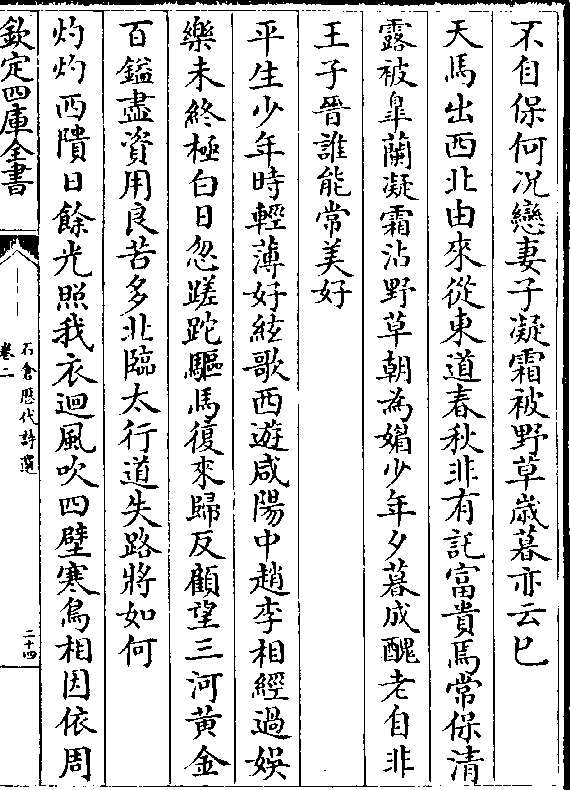 不自保何況戀妻子凝霜被野草歲暮亦云已
天馬出西北由來從東道春秋非有託富貴焉常保清
露被臯蘭凝霜沾野草朝為媚少年夕暮成醜老自非
王子晉誰能常美好
平生少年時輕薄好絃歌西遊咸陽中趙李相經過娯
樂未終極白日忽蹉跎驅馬復來歸反顧望三河黄金
百鎰盡資用良苦多北臨太行道失路將如何
灼灼西隤日餘光照我衣迴風吹四壁寒鳥相因依周
欽定四庫全書
石倉歷代詩選
卷二
二十四